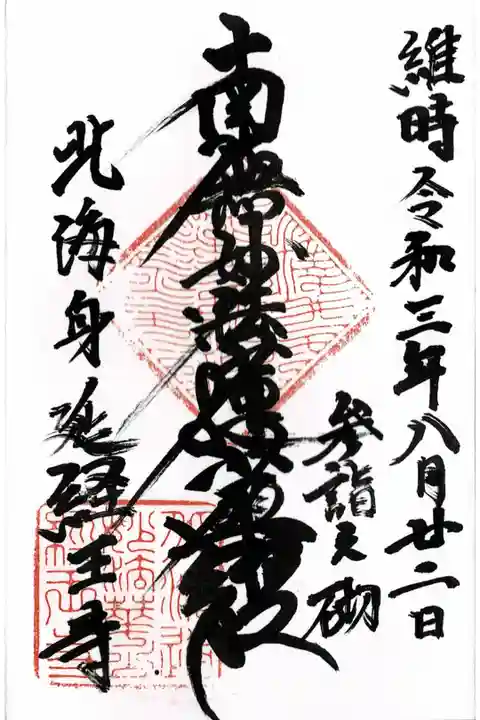 維時令和三年八月廿二日
参詣之砌
南無妙法蓮華経
北海身延経王寺